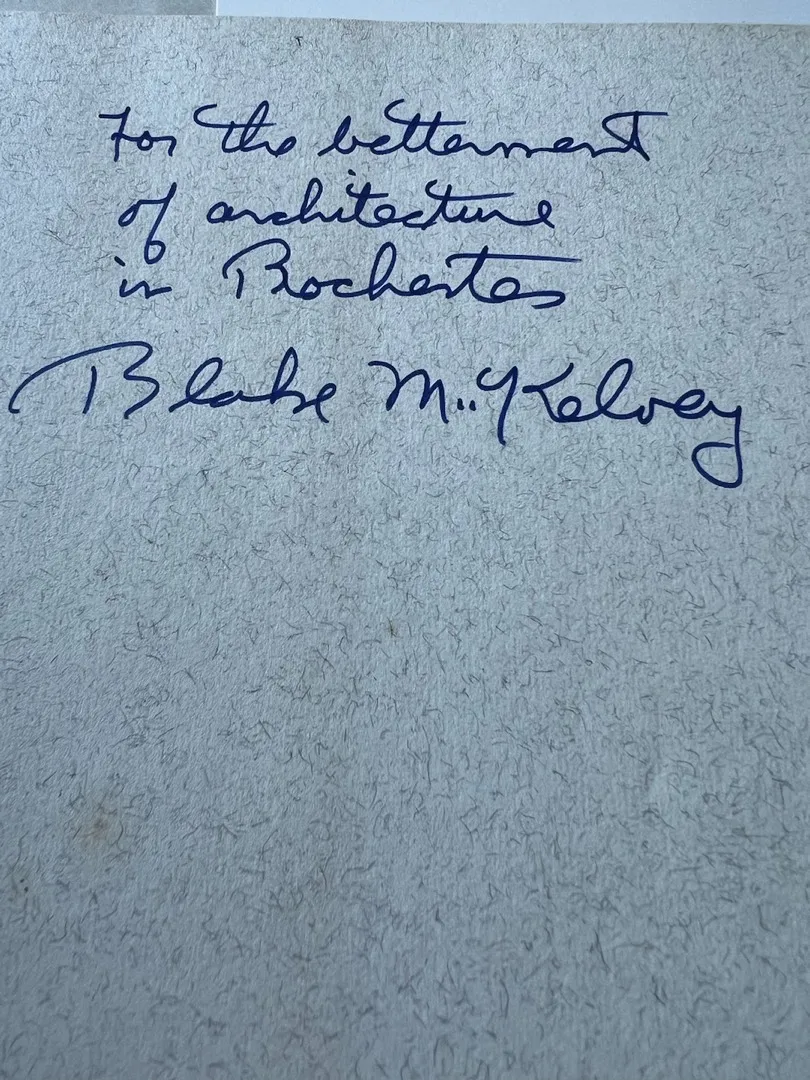 For the betterment
of architecture
in Rochester
Blake McKelvey